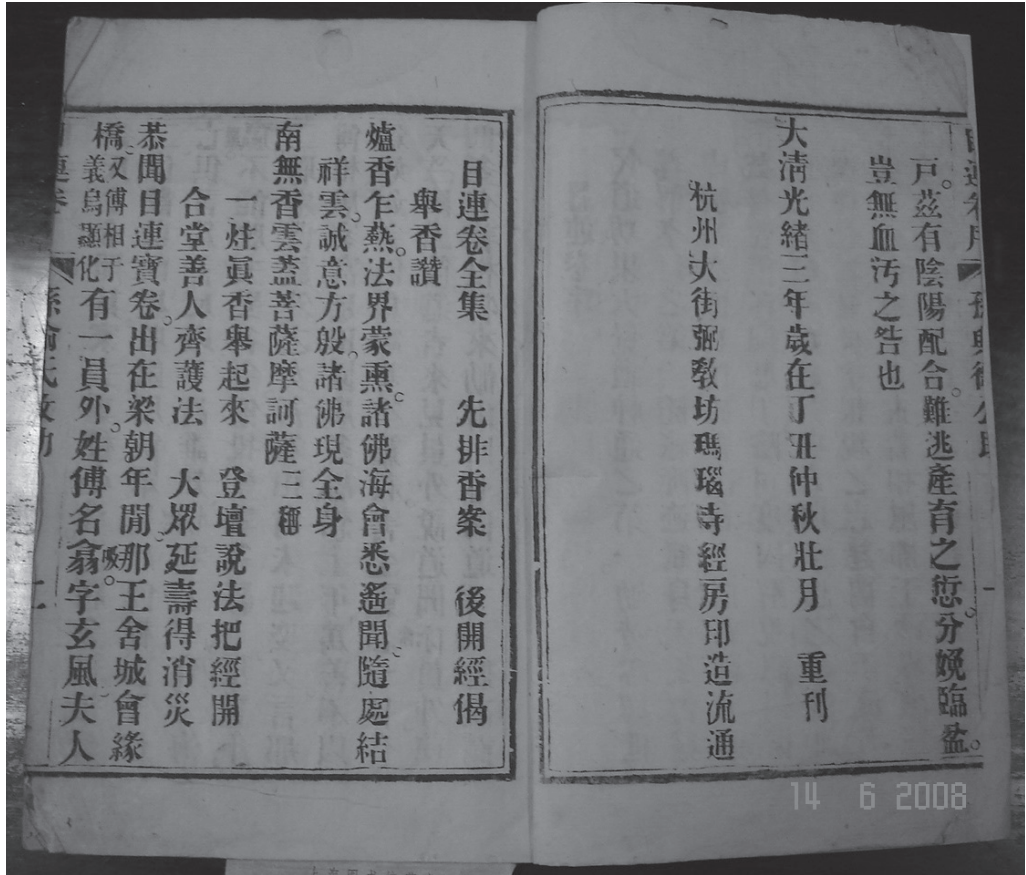 戸。茲有陰陽配合。難逃產育之愆。分娩臨盆。
豈無血汚之咎也
大淸光緒三年歲在丁丑仲秋壯月　重刊
杭州大街弼敎坊瑪瑙寺經房印造流通
目連卷全集　先排香案　後開經偈
舉香讚
爐香乍爇。法界蒙熏。諸佛海會悉遙聞。隨處結
祥雲。誠意方殷。諸佛現全身
南無香雲蓋菩薩摩訶薩 三稱
一炷眞香舉起來　登壇說法把經開
合堂善人齊護法　大眾延壽得消災
恭聞目連寶卷。出在梁朝年閒。那王舍城會緣
橋。又傅相子義烏顯化有一員外。姓傅名翕。字玄風夫人
14 6 2008